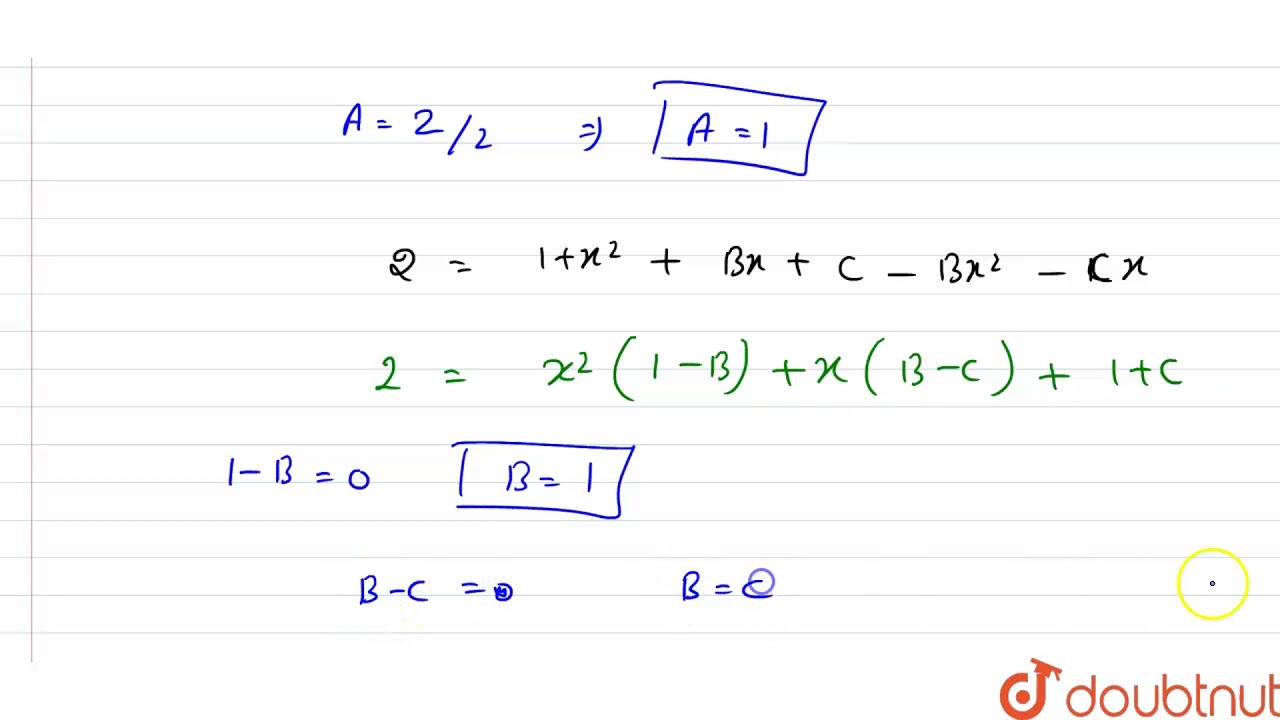 A = 2/2 ⇒ A = 1
2 = 1+x² + Bx + C − Bx² − Cx
2 = x² (1−B) + x (B−C) + 1+C
1−B = 0 B = 1
B−C = 0 B = C
doubtnut